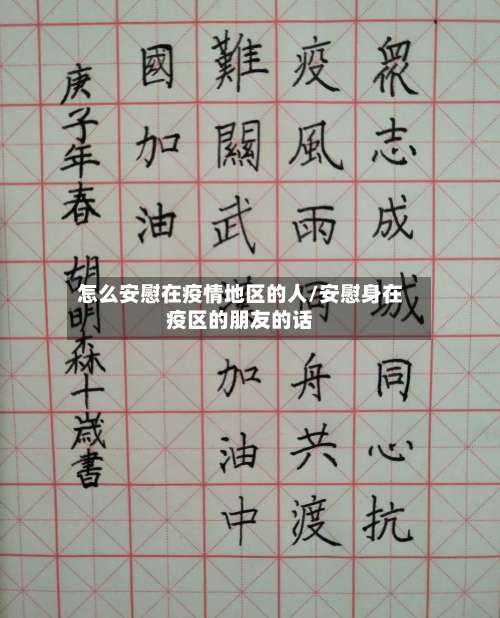 衆志成城同心抗
疫風雨同舟共渡
難關武漢加油中
國加油
庚子年春 胡明森十歲書
怎么安慰在疫情地区的人/安慰身在
疫区的朋友的话